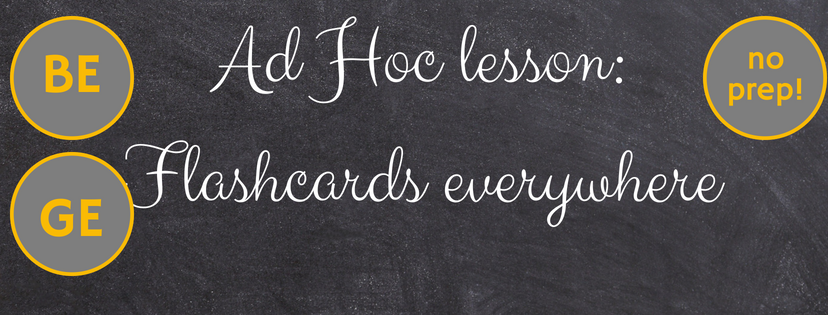 BE
Ad Hoc lesson:
no
prep!
GE
Flashcards everywhere